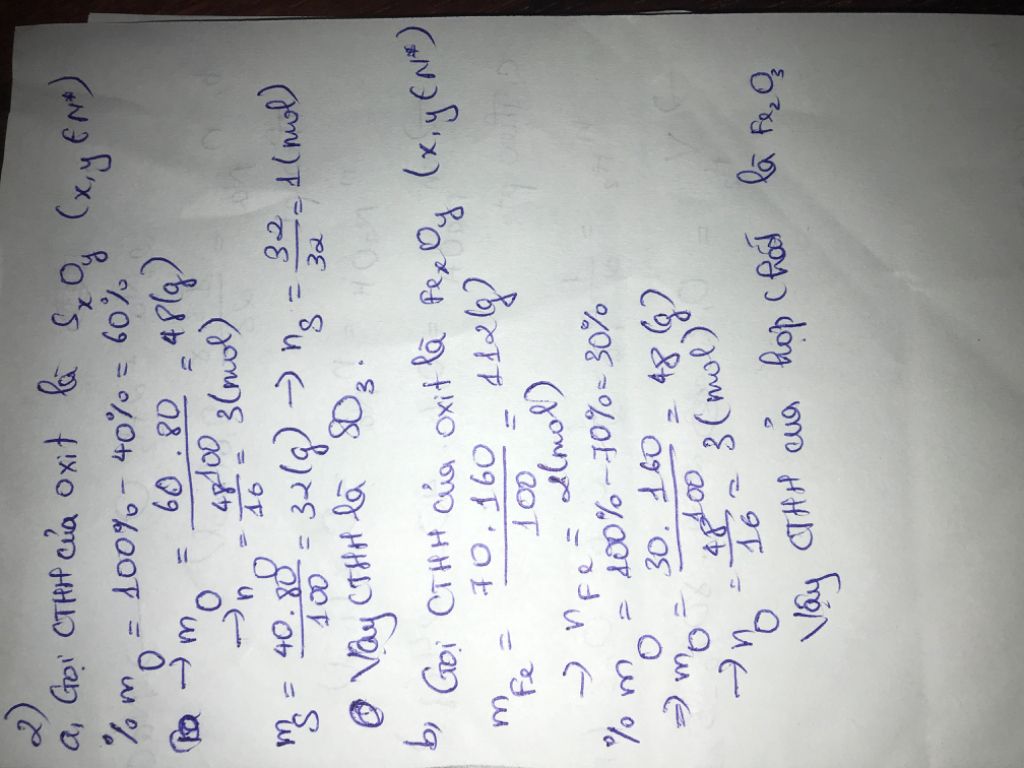 2)
a, Gọi CTHH của oxit là SxOy (x,y ∈ N*)
% mO = 100% - 40% = 60%
→ mO = 60.80/100 = 48(g)
→ nO = 48/16 = 3(mol)
mS = 40.80/100 = 32(g) → nS = 32/32 = 1(mol)
Vậy CTHH là SO3.
b, Gọi CTHH của oxit là FexOy (x,y ∈ N*)
mFe = 70.160/100 = 112(g)
→ nFe = 2(mol)
% mO = 100% - 70% = 30%
⇒ mO = 30.160/100 = 48(g)
→ nO = 48/16 = 3(mol)
Vậy CTHH của hợp chất là Fe2O3